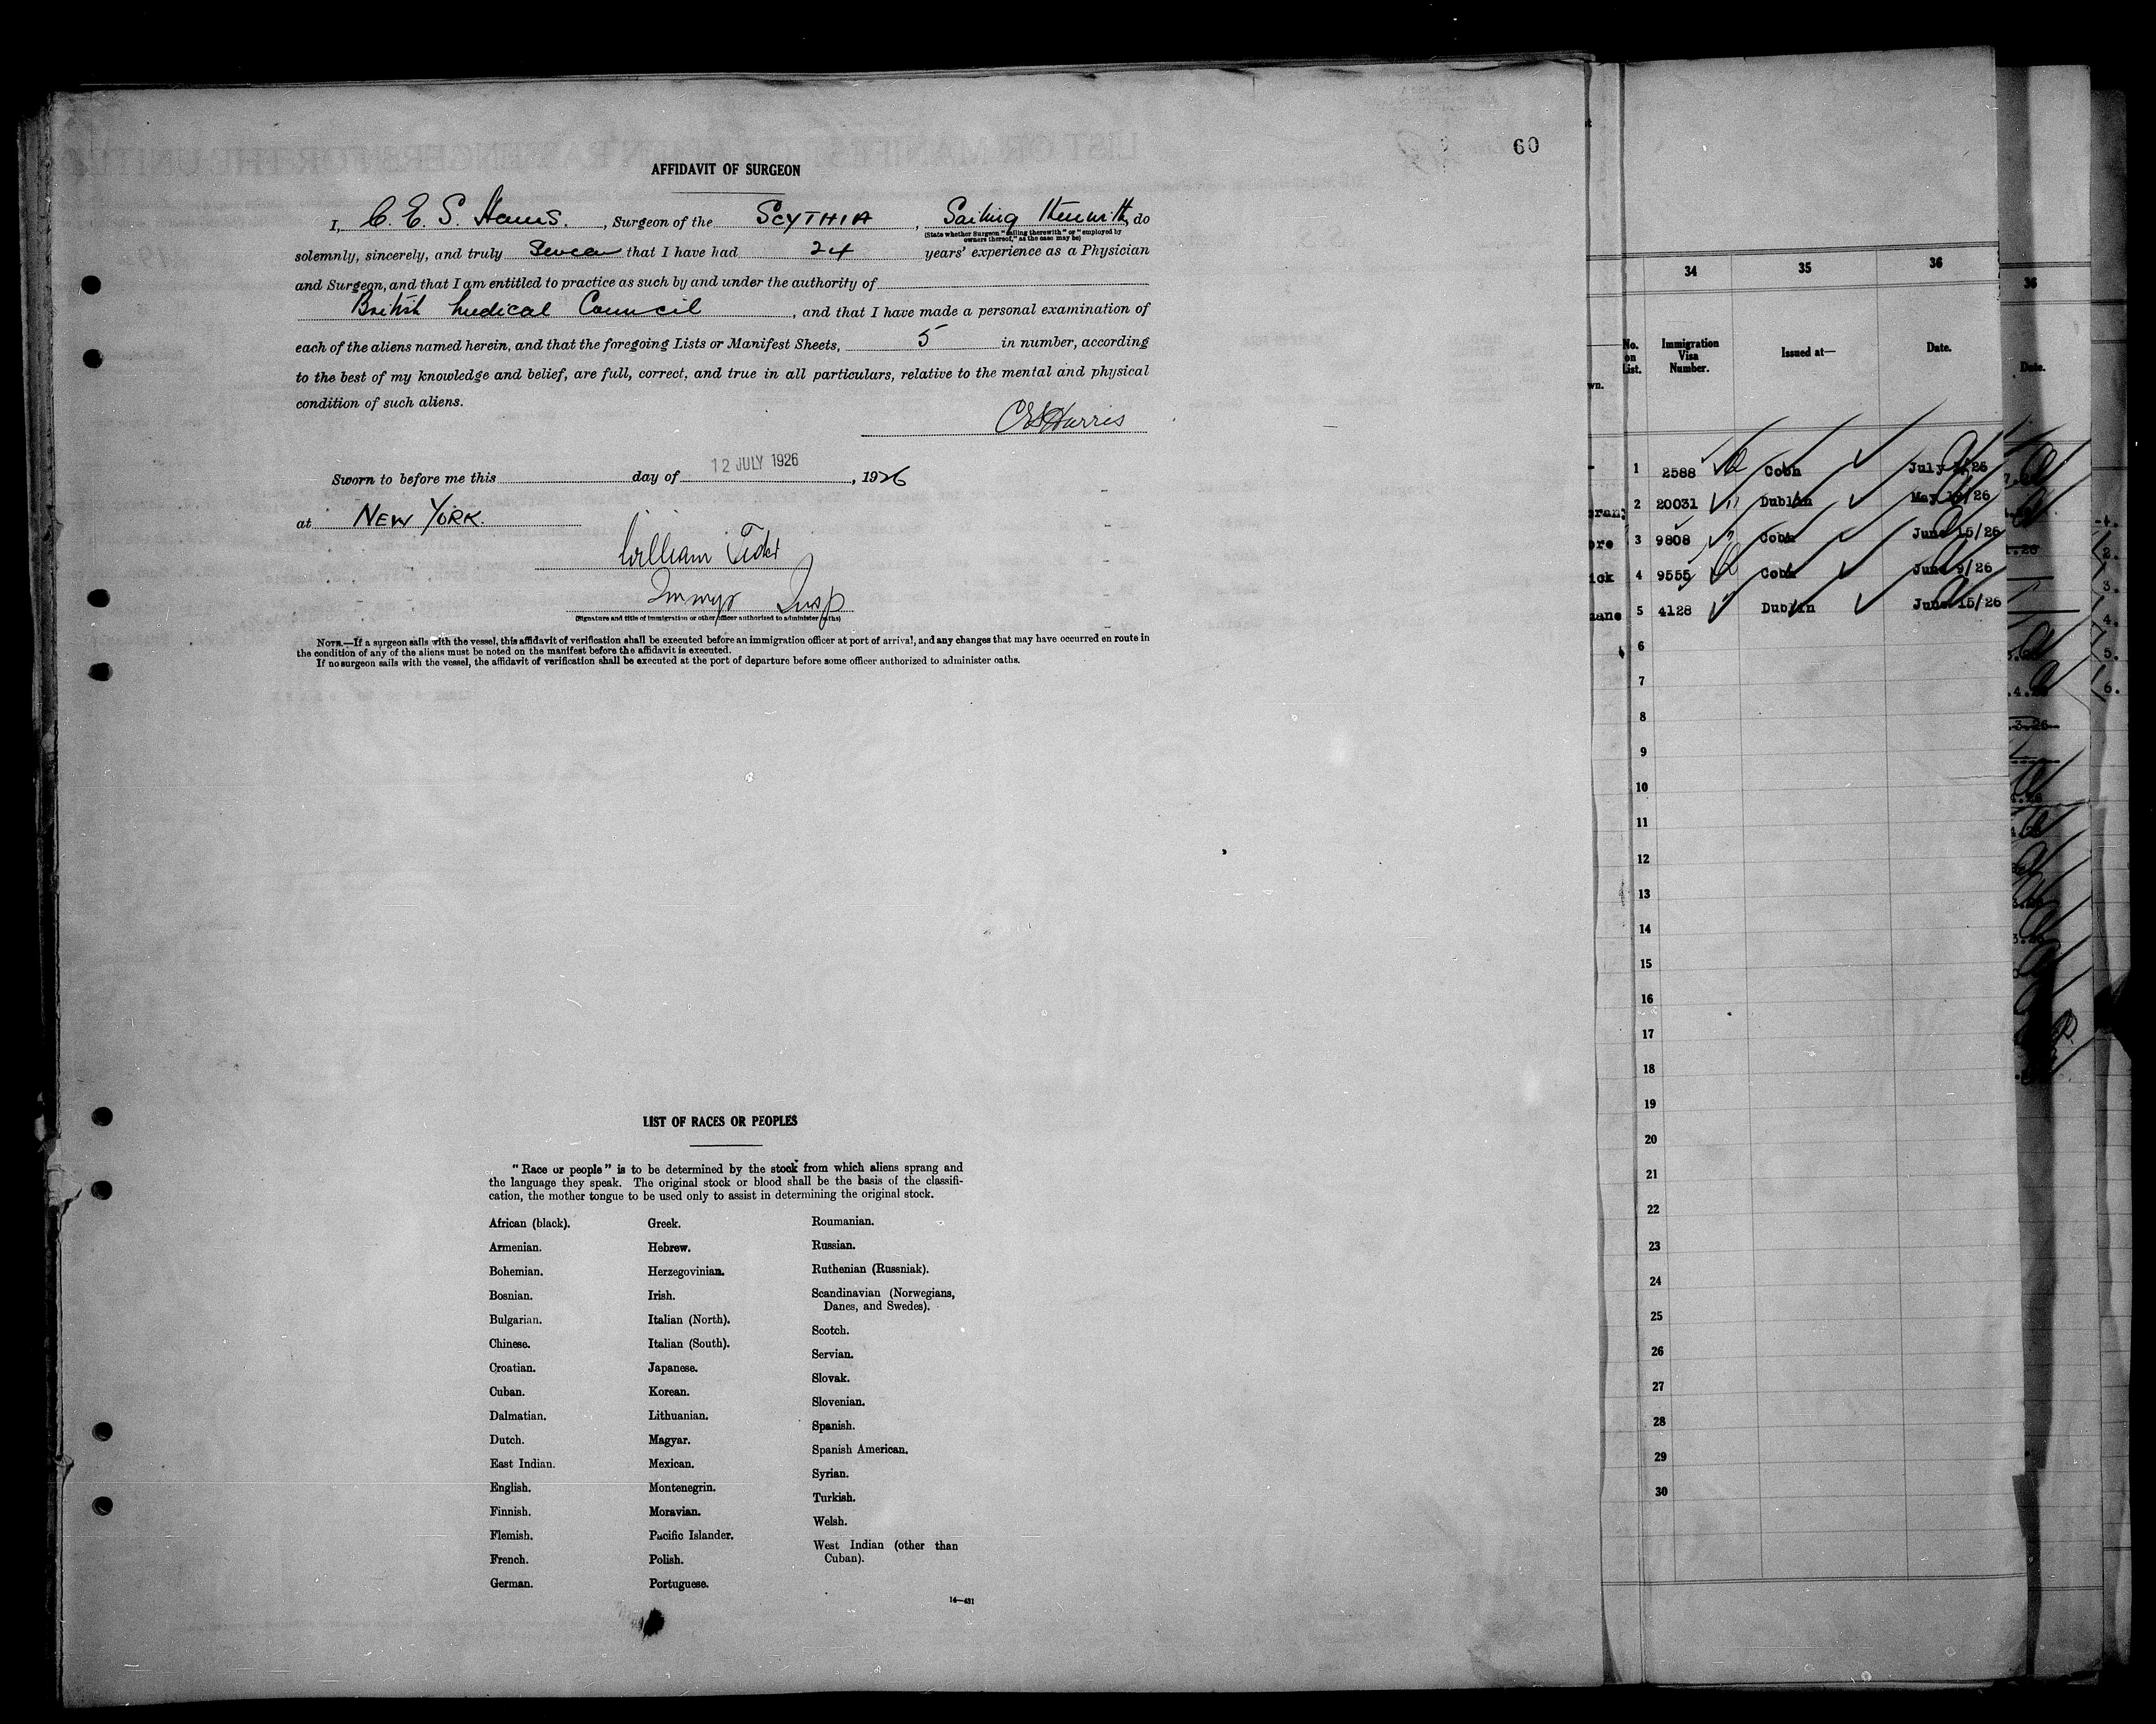 60
AFFIDAVIT OF SURGEON
I, C. E. S. Harris. , Surgeon of the SCYTHIA , Sailing therewith, do
(State whether Surgeon "sailing therewith" or "employed by
owners thereof," as the case may be)
solemnly, sincerely, and truly swear that I have had 24 years' experience as a Physician
and Surgeon, and that I am entitled to practice as such by and under the authority of
British Medical Council , and that I have made a personal examination of
each of the aliens named herein, and that the foregoing Lists or Manifest Sheets, 5 in number, according
to the best of my knowledge and belief, are full, correct, and true in all particulars, relative to the mental and physical
condition of such aliens.
CES Harris
Sworn to before me this day of 12 JULY 1926 , 1926
at NEW YORK.
William
Immigr Insp
(Signature and title of immigration or other officer authorized to administer oaths)
NOTE.—If a surgeon sails with the vessel, this affidavit of verification shall be executed before an immigration officer at port of arrival, and any changes that may have occurred en route in
the condition of any of the aliens must be noted on the manifest before the affidavit is executed.
If no surgeon sails with the vessel, the affidavit of verification shall be executed at the port of departure before some officer authorized to administer oaths.
LIST OF RACES OR PEOPLES
"Race or people" is to be determined by the stock from which aliens sprang and
the language they speak. The original stock or blood shall be the basis of the classifi-
cation, the mother tongue to be used only to assist in determining the original stock.
African (black).
Armenian.
Bohemian.
Bosnian.
Bulgarian.
Chinese.
Croatian.
Cuban.
Dalmatian.
Dutch.
East Indian.
English.
Finnish.
Flemish.
French.
German.
Greek.
Hebrew.
Herzegovinian.
Irish.
Italian (North).
Italian (South).
Japanese.
Korean.
Lithuanian.
Magyar.
Mexican.
Montenegrin.
Moravian.
Pacific Islander.
Polish.
Portuguese.
Roumanian.
Russian.
Ruthenian (Russniak).
Scandinavian (Norwegians,
Danes, and Swedes).
Scotch.
Servian.
Slovak.
Slovenian.
Spanish.
Spanish American.
Syrian.
Turkish.
Welsh.
West Indian (other than
Cuban).
14—431
34 35 36
No. on List. Immigration Visa Number. Issued at— Date.
1 2588 Cobh July /26
2 20031 Dublin May /26
3 9808 Cobh June 15/26
4 9555 Cobh June 9/26
5 4128 Dublin June 15/26
6
7
8
9
10
11
12
13
14
15
16
17
18
19
20
21
22
23
24
25
26
27
28
29
30
36
Date.
2.
3.
4.
5.
6.